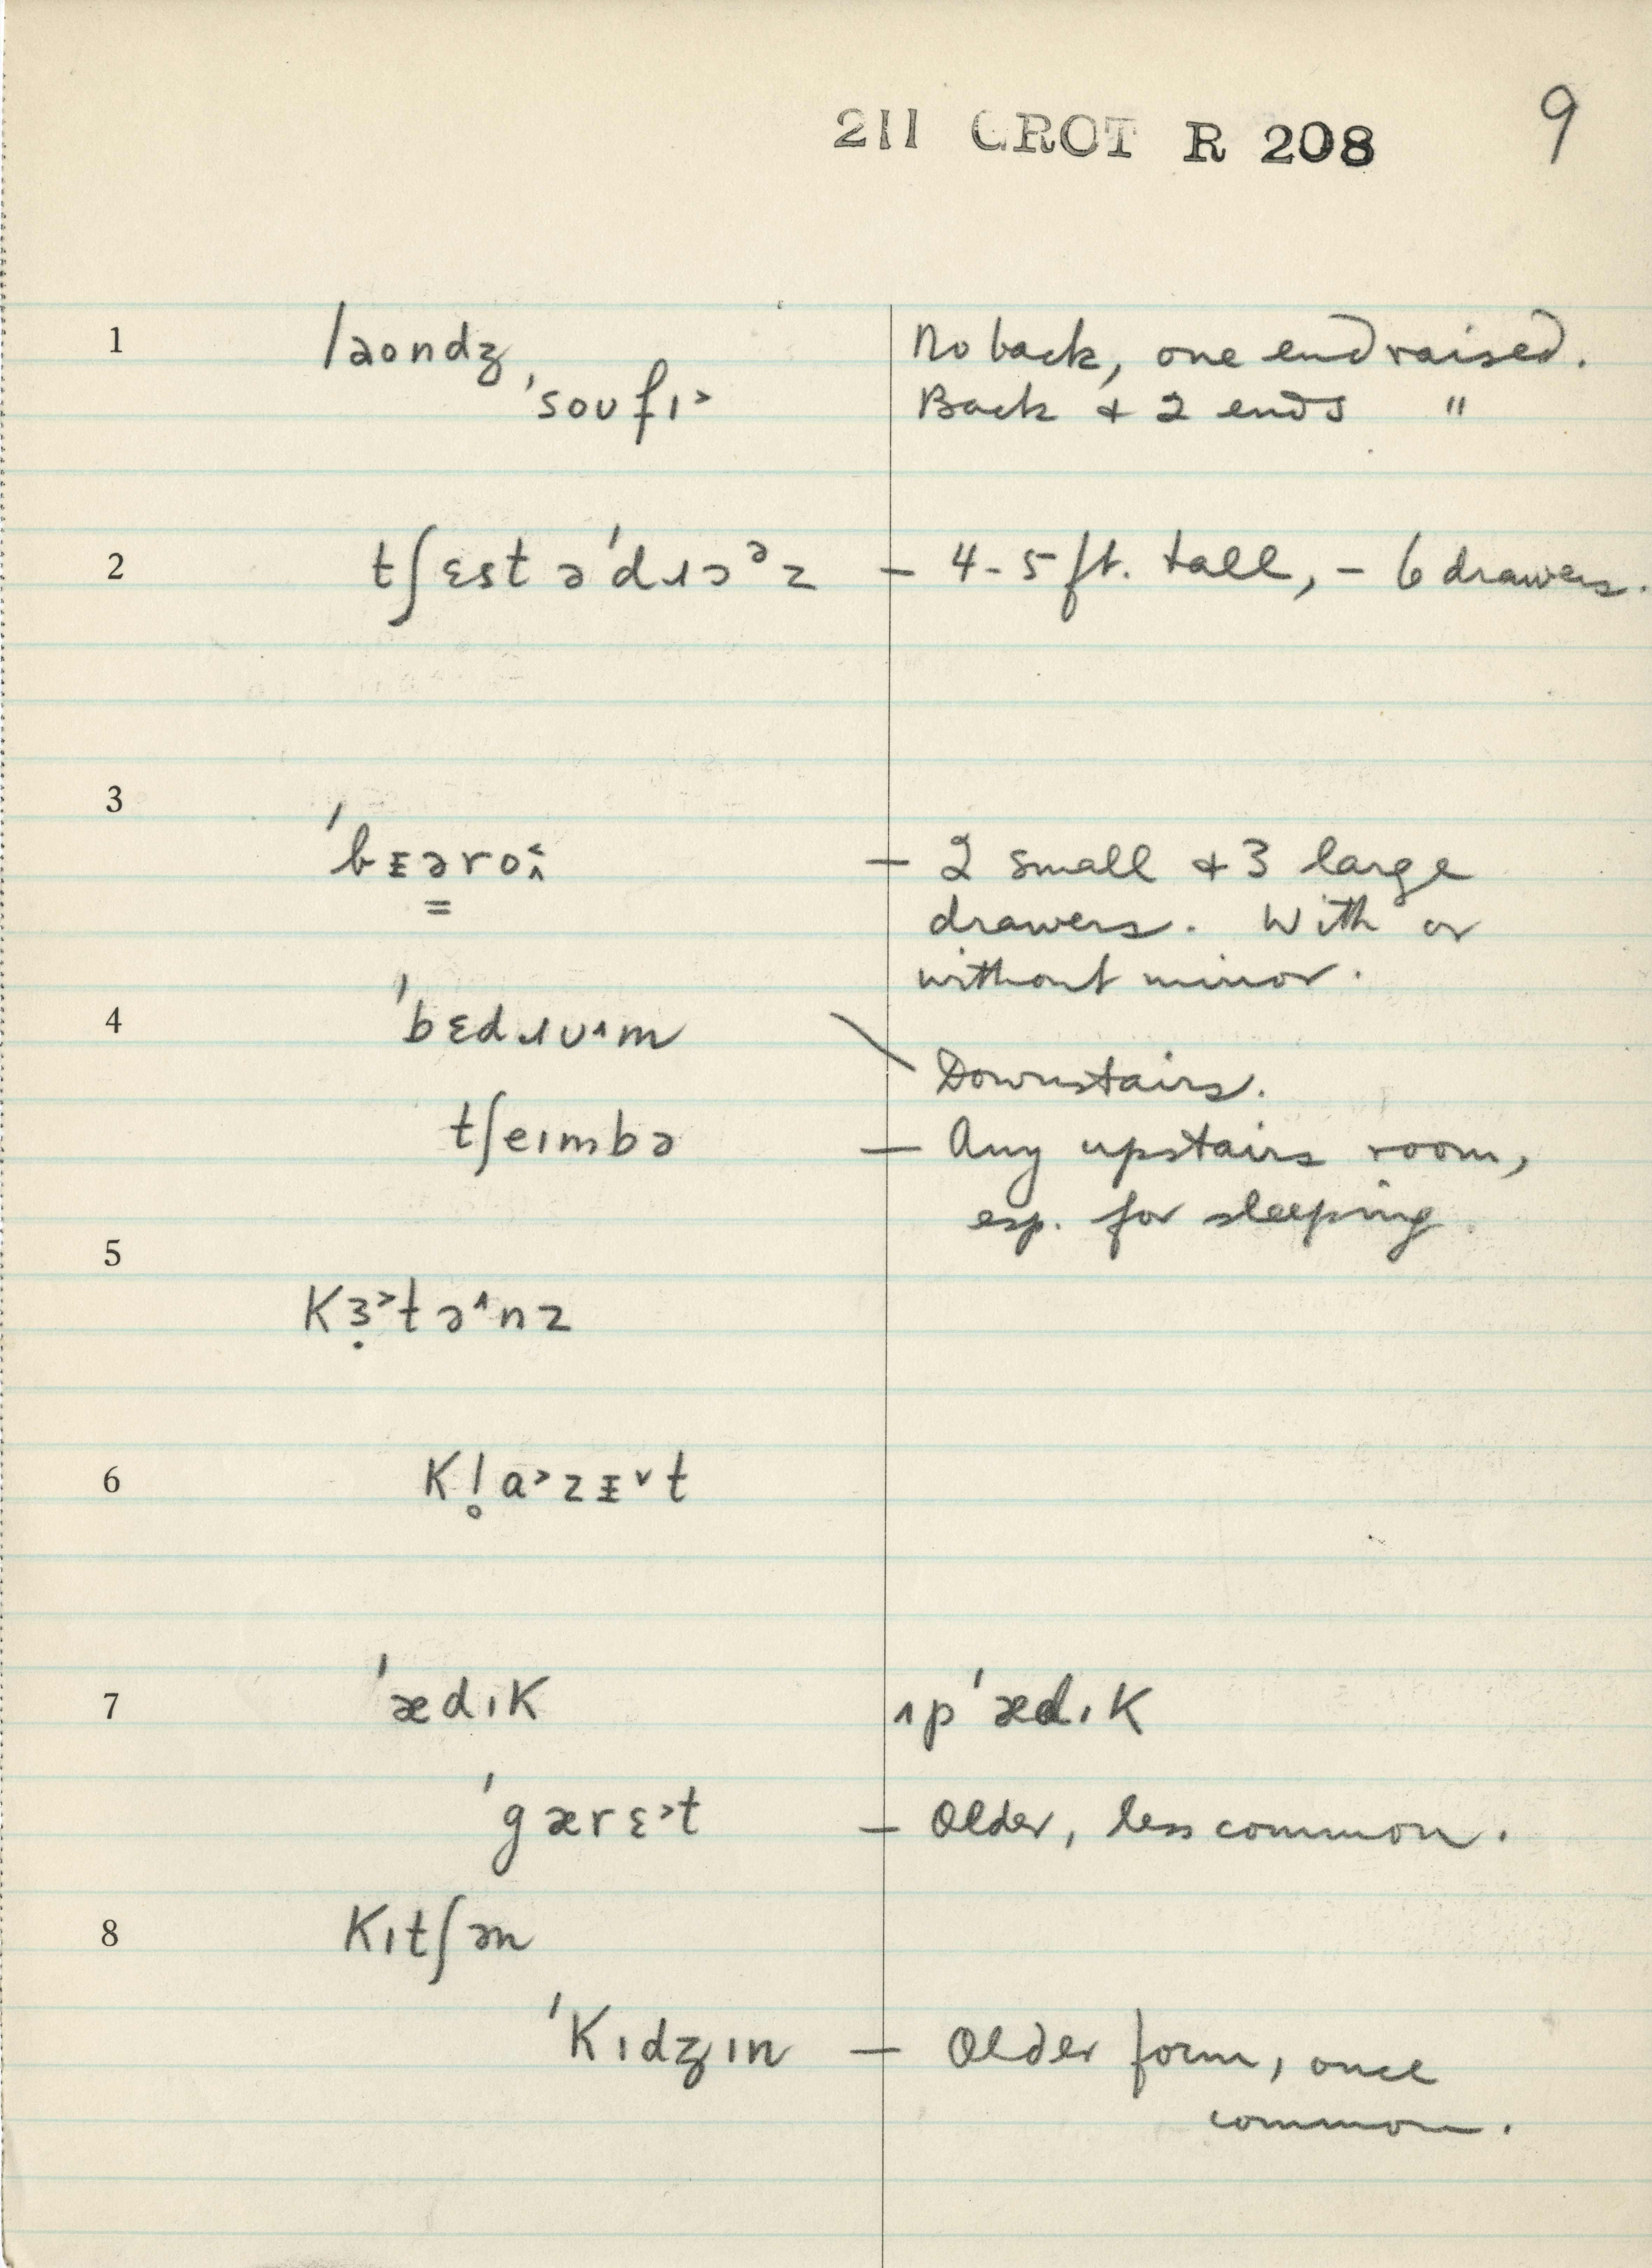 211 CROT R 208 9
1 laondʒ No back, one end raised.
ˈsoʊfɪ˃ Back & 2 ends "
2 tʃɛst əˈdɹɔᵊz – 4-5 ft. tall, – 6 drawers.
3
– 2 small & 3 large
drawers. With or
without mirror.
4 ˈbɛdɹʊ˄m
Downstairs.
tʃeɪmbə – Any upstairs room,
esp. for sleeping.
5
kɜ̣˃tə˄nz
6
7 ˈædɪk ɪpˈædɪk
ˈgærɛ˃t – Older, less common.
8 kɪtʃən
ˈkɪdʒɪn – Older form, once
common.